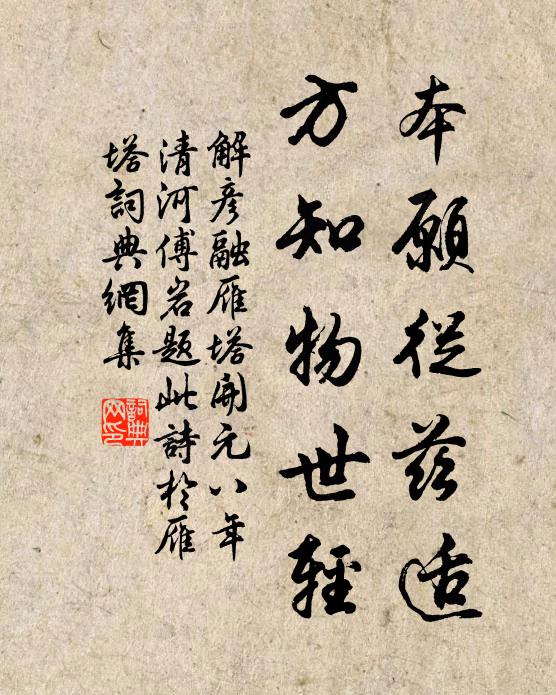 本願從茲适
方知物世輕
解彦融雁塔開元八年
清河傅岩題此詩於雁
塔詞典網集
詞典网印